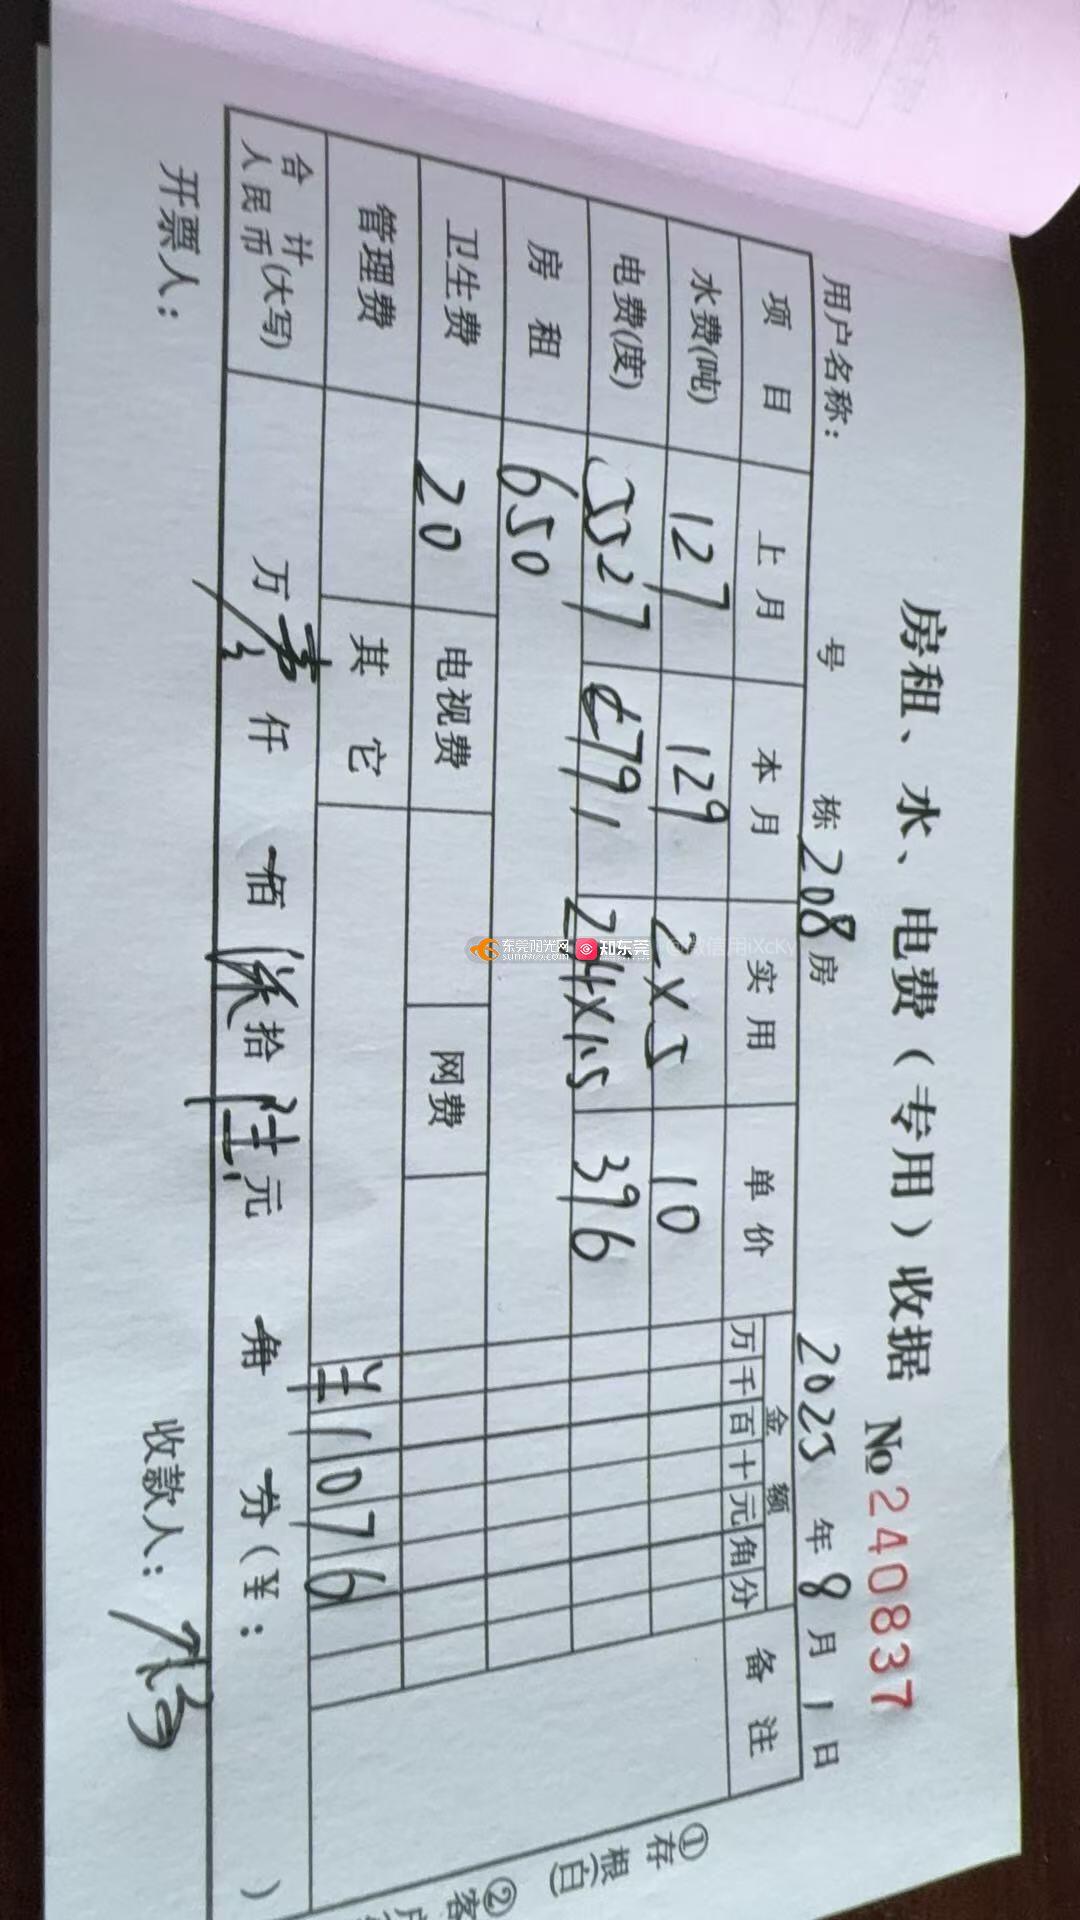 房租、水、电费（专用）收据 №240837
用户名称： 号 栋208房 2025年8月1日
项目 上月 本月 实用 单价 金额 备注
万千百十元角分
水费(吨) 127 129 2×5 10
电费(度) 5527 5791 264×1.5 396
房租 650
卫生费 20 电视费 网费
管理费 其它 ¥1076
合计 人民币(大写) 万 壹仟 佰 柒拾 陆元 角 分(¥： )
开票人： 收款人：
①存根(白)
②客户
东莞阳光网
sun0769.com
知东莞
@微信用iXcKy